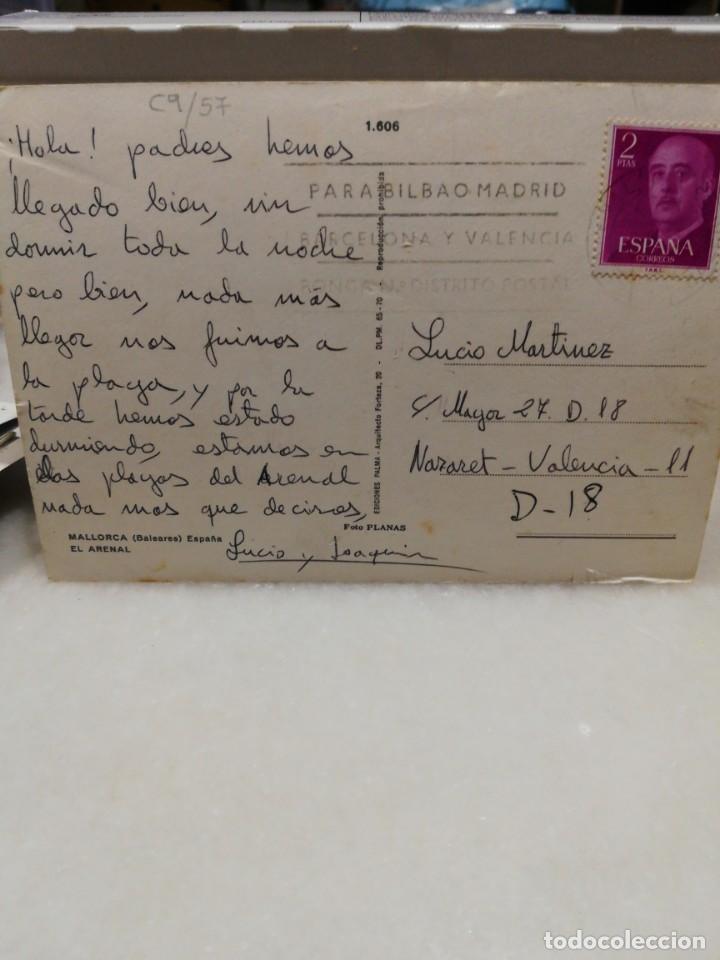 C9/57
1.606
¡Hola! padres hemos
llegado bien, sin
dormir toda la noche
pero bien, nada más
llegar nos fuimos a
la playa, y por la
tarde hemos estado
durmiendo, estamos en
las playas del Arenal
nada mas que deciros,
Lucio y Joaquin
MALLORCA (Baleares) España
EL ARENAL
Foto PLANAS
EDICIONES PALMA - Arquitecto Forteza, 20 - DL.PM. 65-70 - Reproducción prohibida
PARA BILBAO MADRID
BARCELONA Y VALENCIA
PONGA Nº DISTRITO POSTAL
2
PTAS
ESPAÑA
CORREOS
Lucio Martinez
c/. Mayor 27. D. 18
Nazaret - Valencia - 11
D-18
todocoleccion
todocoleccion.net